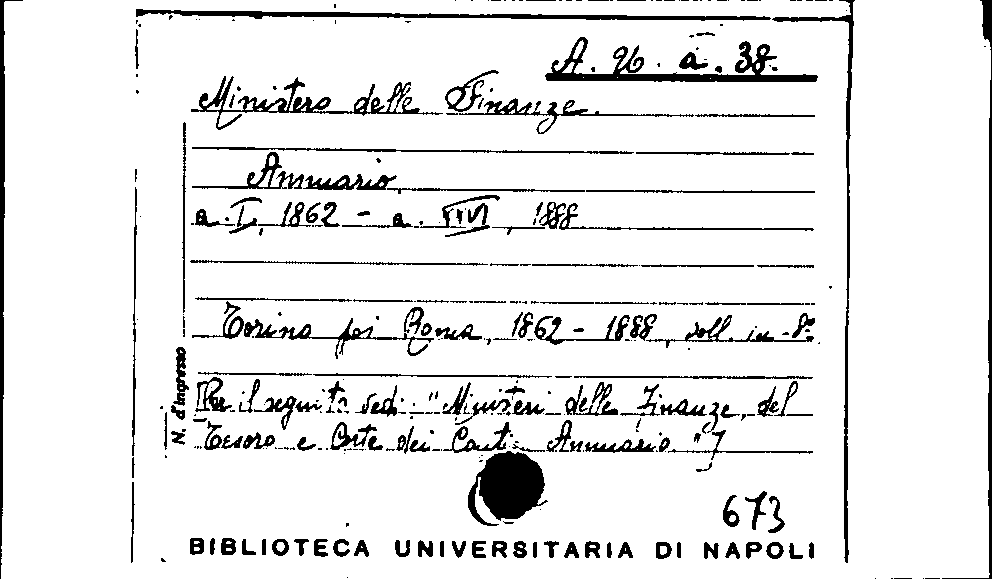 A. 96. a. 38.
Ministero delle Finanze.
Annuario.
a. I, 1862 - a. , 1888
Torino poi Roma, 1862 - 1888, voll. in-8º
[Per il seguito vedi: "Ministeri delle Finanze, del
Tesoro e Corte dei Conti. Annuario."]
N. d'ingresso
673
BIBLIOTECA UNIVERSITARIA DI NAPOLI